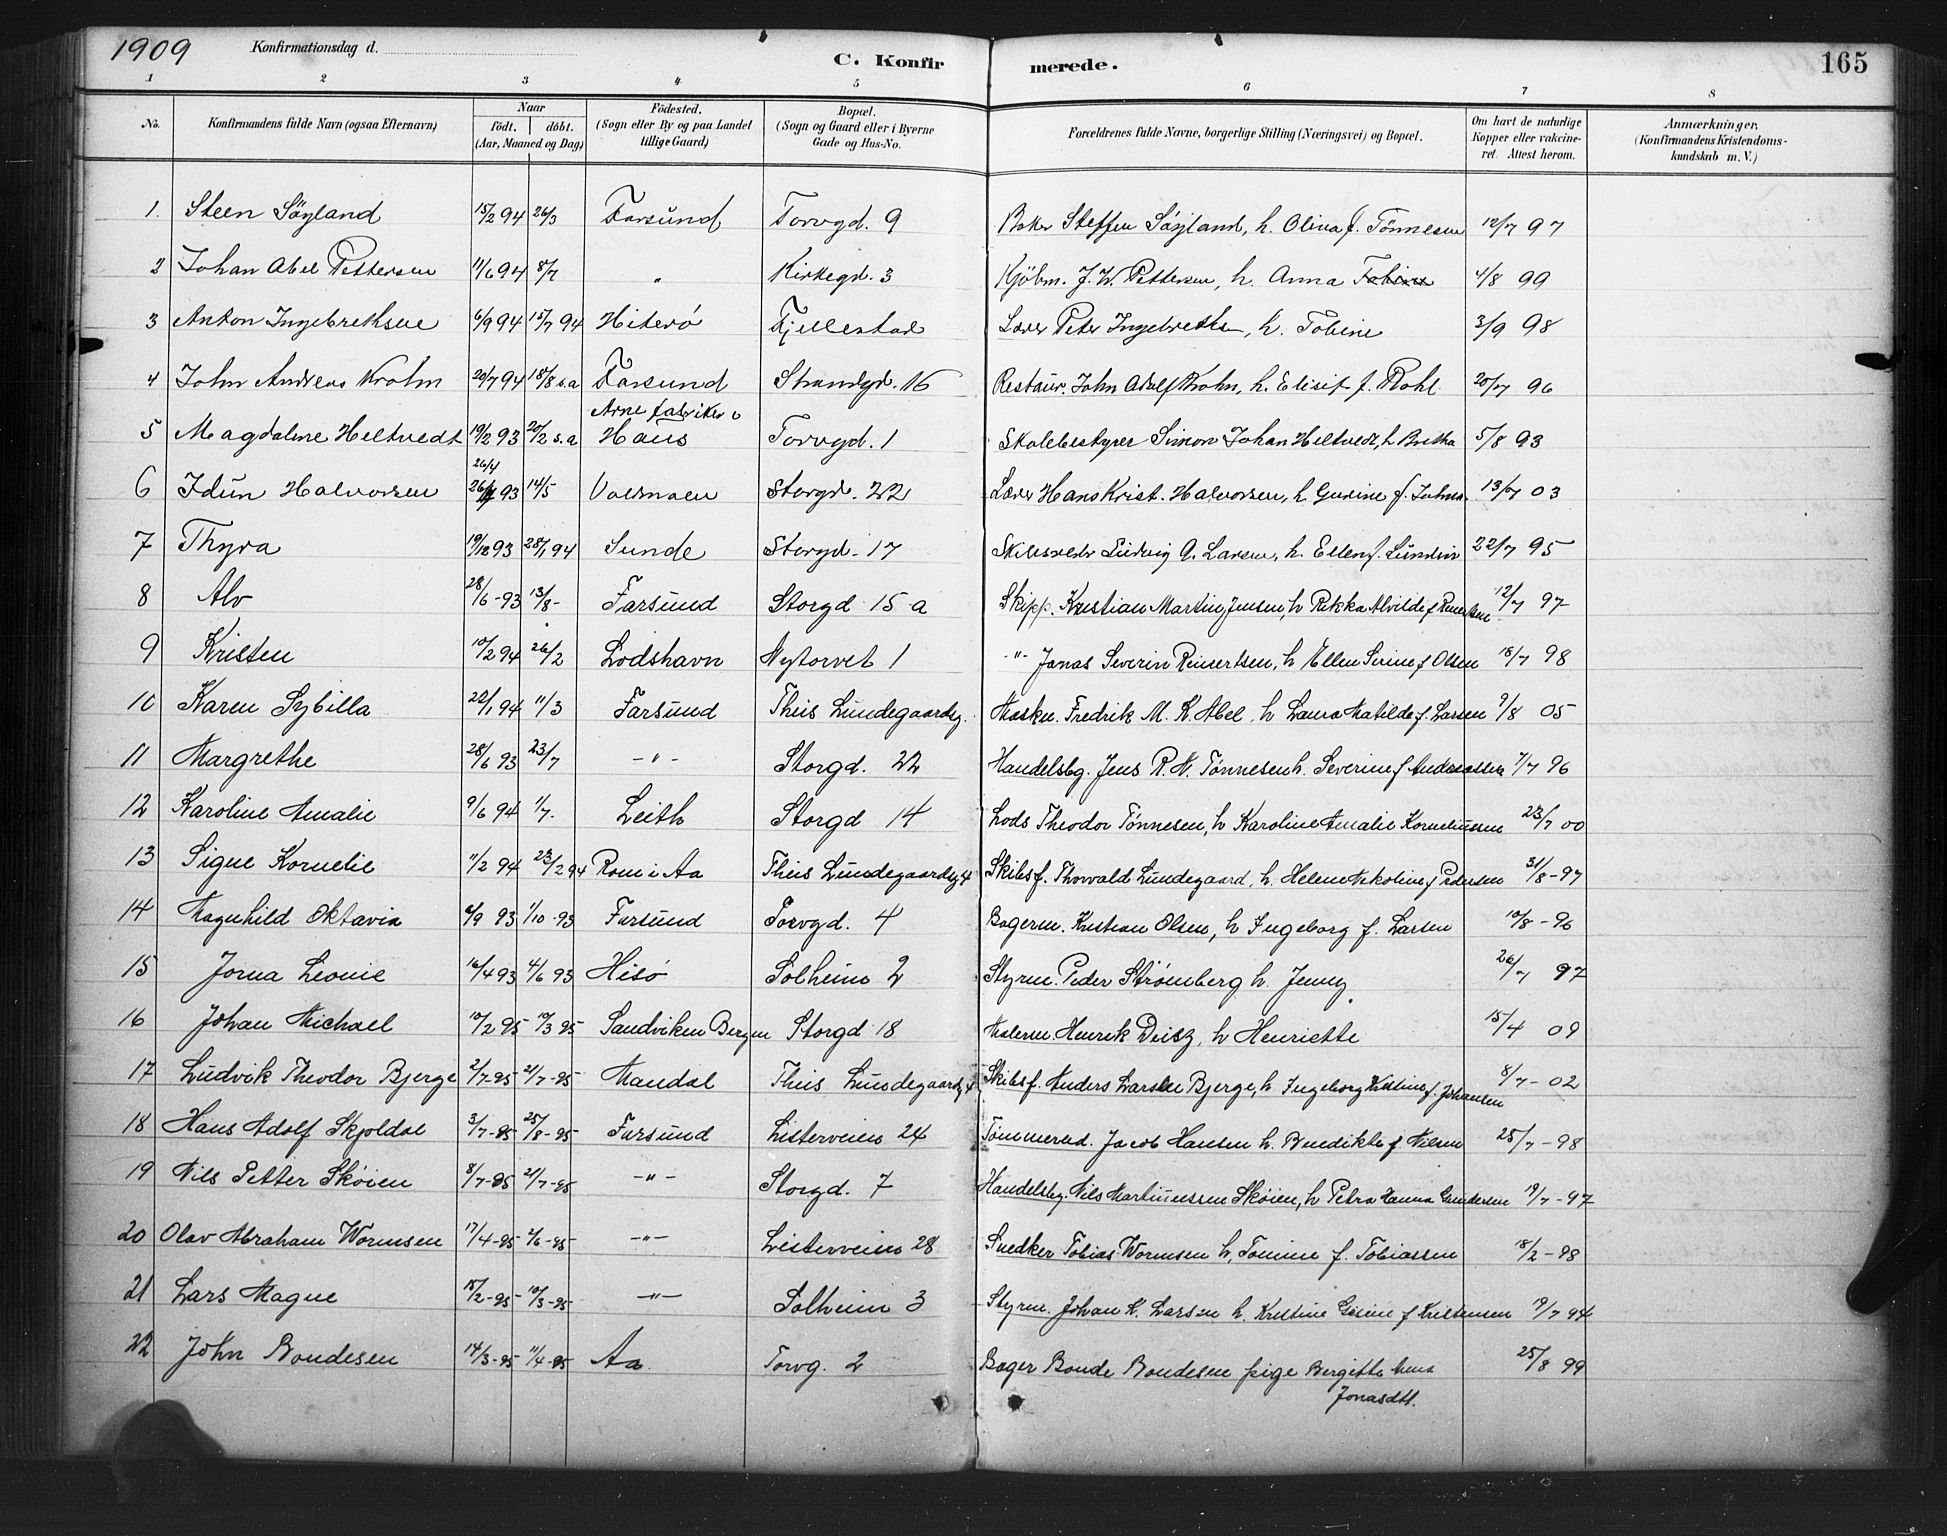 1909 Konfirmationsdag d. C. Konfirmerede. 165
1 2 3 4 5 6 7 8
No. Konfirmandens fulde Navn (ogsaa Efternavn) Naar født. døbt. (Aar, Maaned og Dag) Fødested. (Sogn eller By og paa Landet tillige Gaard) Bopæl. (Sogn og Gaard eller i Byerne Gade og Hus-No. Forældrenes fulde Navne, borgerlige Stilling (Næringsvei) og Bopæl. Om havt de naturlige Kopper eller vakcineret. Attest herom. Anmærkninger, (Konfirmandens Kristendomskundskab m. V.)
1. Steen Søyland 15/2 94 26/3 Farsund Torvgd. 9 Baker Steffen Søyland, h. Olina f. Tönnesen 12/7 97
2 Johan Abel Pettersen 11/6 94 8/7 " Kirkegd. 3 Kjöbm. J. W. Pettersen, h. Anna 4/8 99
3 Anton Ingebrethsen 6/9 94 15/7 94 Hiterö Fjellestad Lærer Peter Ingebreths, h. Tobine 3/9 98
4 John Andreas Krohn 20/7 94 18/8 s.a Farsund Strandgd. 16 Restaur. John Adolf Krohn, h. Elisif f. Dohl 20/7 96
5 Magdalene Heltvedt 19/2 93 20/2 s.a Arne fabriker i Haus Torvgd. 1 Skolebestyrer Simon Johan Heltvedt, h Bretha 5/8 93
6 Idun Halvorsen 26/4 93 14/5 Storgd. 22 Lærer Hans Krist. Halvorsen, h. Gurine f. Johns. 13/7 03
7 Thyra 19/12 93 28/1 94 Sunde Storgd. 17 Ludvig A. Larsen, h. Ellen f. Lundin 22/7 95
8 Alv 28/6-93 13/8- Farsund Storgd 15 a Skipp. Kristian Martin Jensen, h Rikka Alvilde f Reinertsen 12/7 97
9 Kristen 10/2 94 26/2 Lodshavn Nytorvet 1 -"- Jonas Severin Reinertsen, h Ellen Serine f Olsen 18/7 98
10 Karen Sybilla 22/1 94 11/3 Farsund Theis Lundegaardsg. Maskn. Fredrik M. K. Abel, h Laura Matilde f. Larsen 9/8 05
11 Margrethe 28/6 93 23/7 -"- Storgd. 22 Handelsbg. Jens R. N. Tönnesen h. Severine f Andreassen 7/7 96
12 Karoline Amalie 9/6 94 1/7. Leith Storgd 14 Lods Theodor Tönnesen, h Karoline Amalie Korneliussen 23/7 00
13 Signe Kornelie 11/2 94 23/2 94 Rom i Aa Theis Lundegaardsg 4 Skibsf. Thorvald Lundegaard, h. Helene Nikoline f Pedersen 31/8-97
14 Magnhild Oktavia 6/9 93 1/10-93 Farsund Torvgd. 4 Bagerm. Kristian Olsen, h Ingeborg f. Larsen 10/8-96
15 Jorna Leonie 16/4 93 4/6 93 Hisö Solheim 2 Styrm. Peder Strömberg h. Jenny 26/7 97
16 Johan Michael 10/2 95 10/3 95 Sandviken Bergen Storgd 18 Malerm. Henrik Deisz, h Henriette 15/4 09
17 Ludvik Theodor Bjerge 2/7-95 21/7-95 Mandal Theis Lundegaardsg 4 Skibsf. Anders Larsen Bjerge, h Ingeborg Kristine f. Johansen 8/7-02
18 Hans Adolf Skjoldal 3/7-95 25/8-95 Farsund Listerveien 24 Tømmermd. Jacob Hansen h. Benedikte f Nilsen 25/7-98
19 Nils Petter Skøien 8/7-95 21/7-95 -"- Storgd. 7 Handelsbg. Nils Martinussen Skøien, h Petra Hanna Gundersen 19/7-97
20 Olav Abraham Wormsen 17/4-95 2/6-95 -"- Listerveien 28 Snedker Tobias Wormsen h, Tomine f. Tobiassen 18/2-98
21 Lars Magne 15/2-95 10/3-95 -"- Solheim 3 Styrm. Johan K. Larsen h. Kristine Gisine f Kristensen 19/7 94
22 John Bondesen 14/3-95 11/4-95 Aa Torvg. 2 Bager Bonde Bondesen pige Bergitte 25/8 99
Jonasdtt.